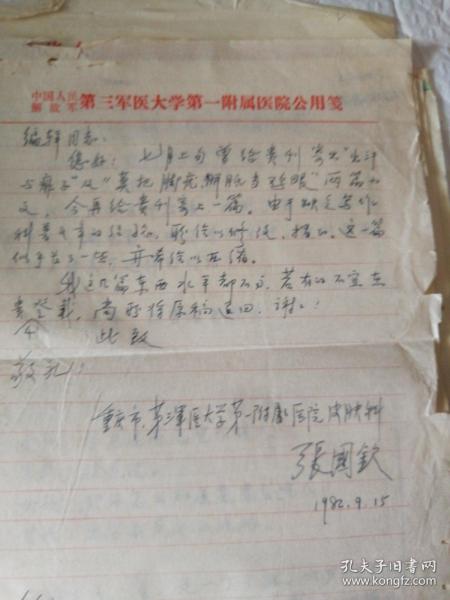 中国人民
解放军 第三军医大学第一附属医院公用笺
编辑同志：
您好！七月上旬曾给贵刊寄出“出汗
与痱子”及“莫把脚疣胼胝当鸡眼”两篇小
文，今再给贵刊寄上一篇。由于缺乏写作
科普文章的经验，盼给以研究、指正。这一篇
似乎长了一些，并希给以压缩。
我这几篇东西水平都不高，若有的不宜在
贵 登载，尚盼将原稿退回。谢谢！
此致
敬礼！
重庆市第三军医大学第一附属医院皮肤科
張國欽
1982.9.15
孔夫子旧书网
www.kongfz.com